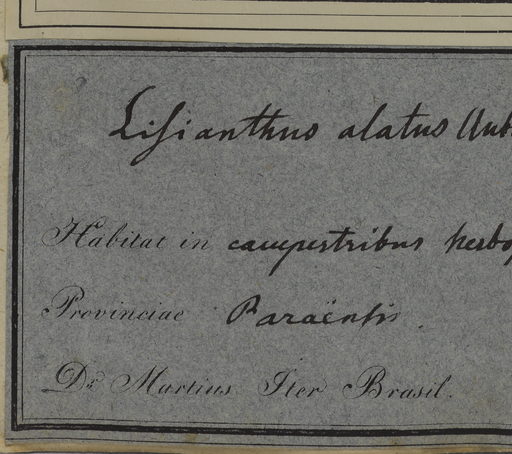 Lisianthus alatus Aub
Habitat in campestribus herbo
Provinciae Paraënsis.
Dr. Martius Iter Brasil.